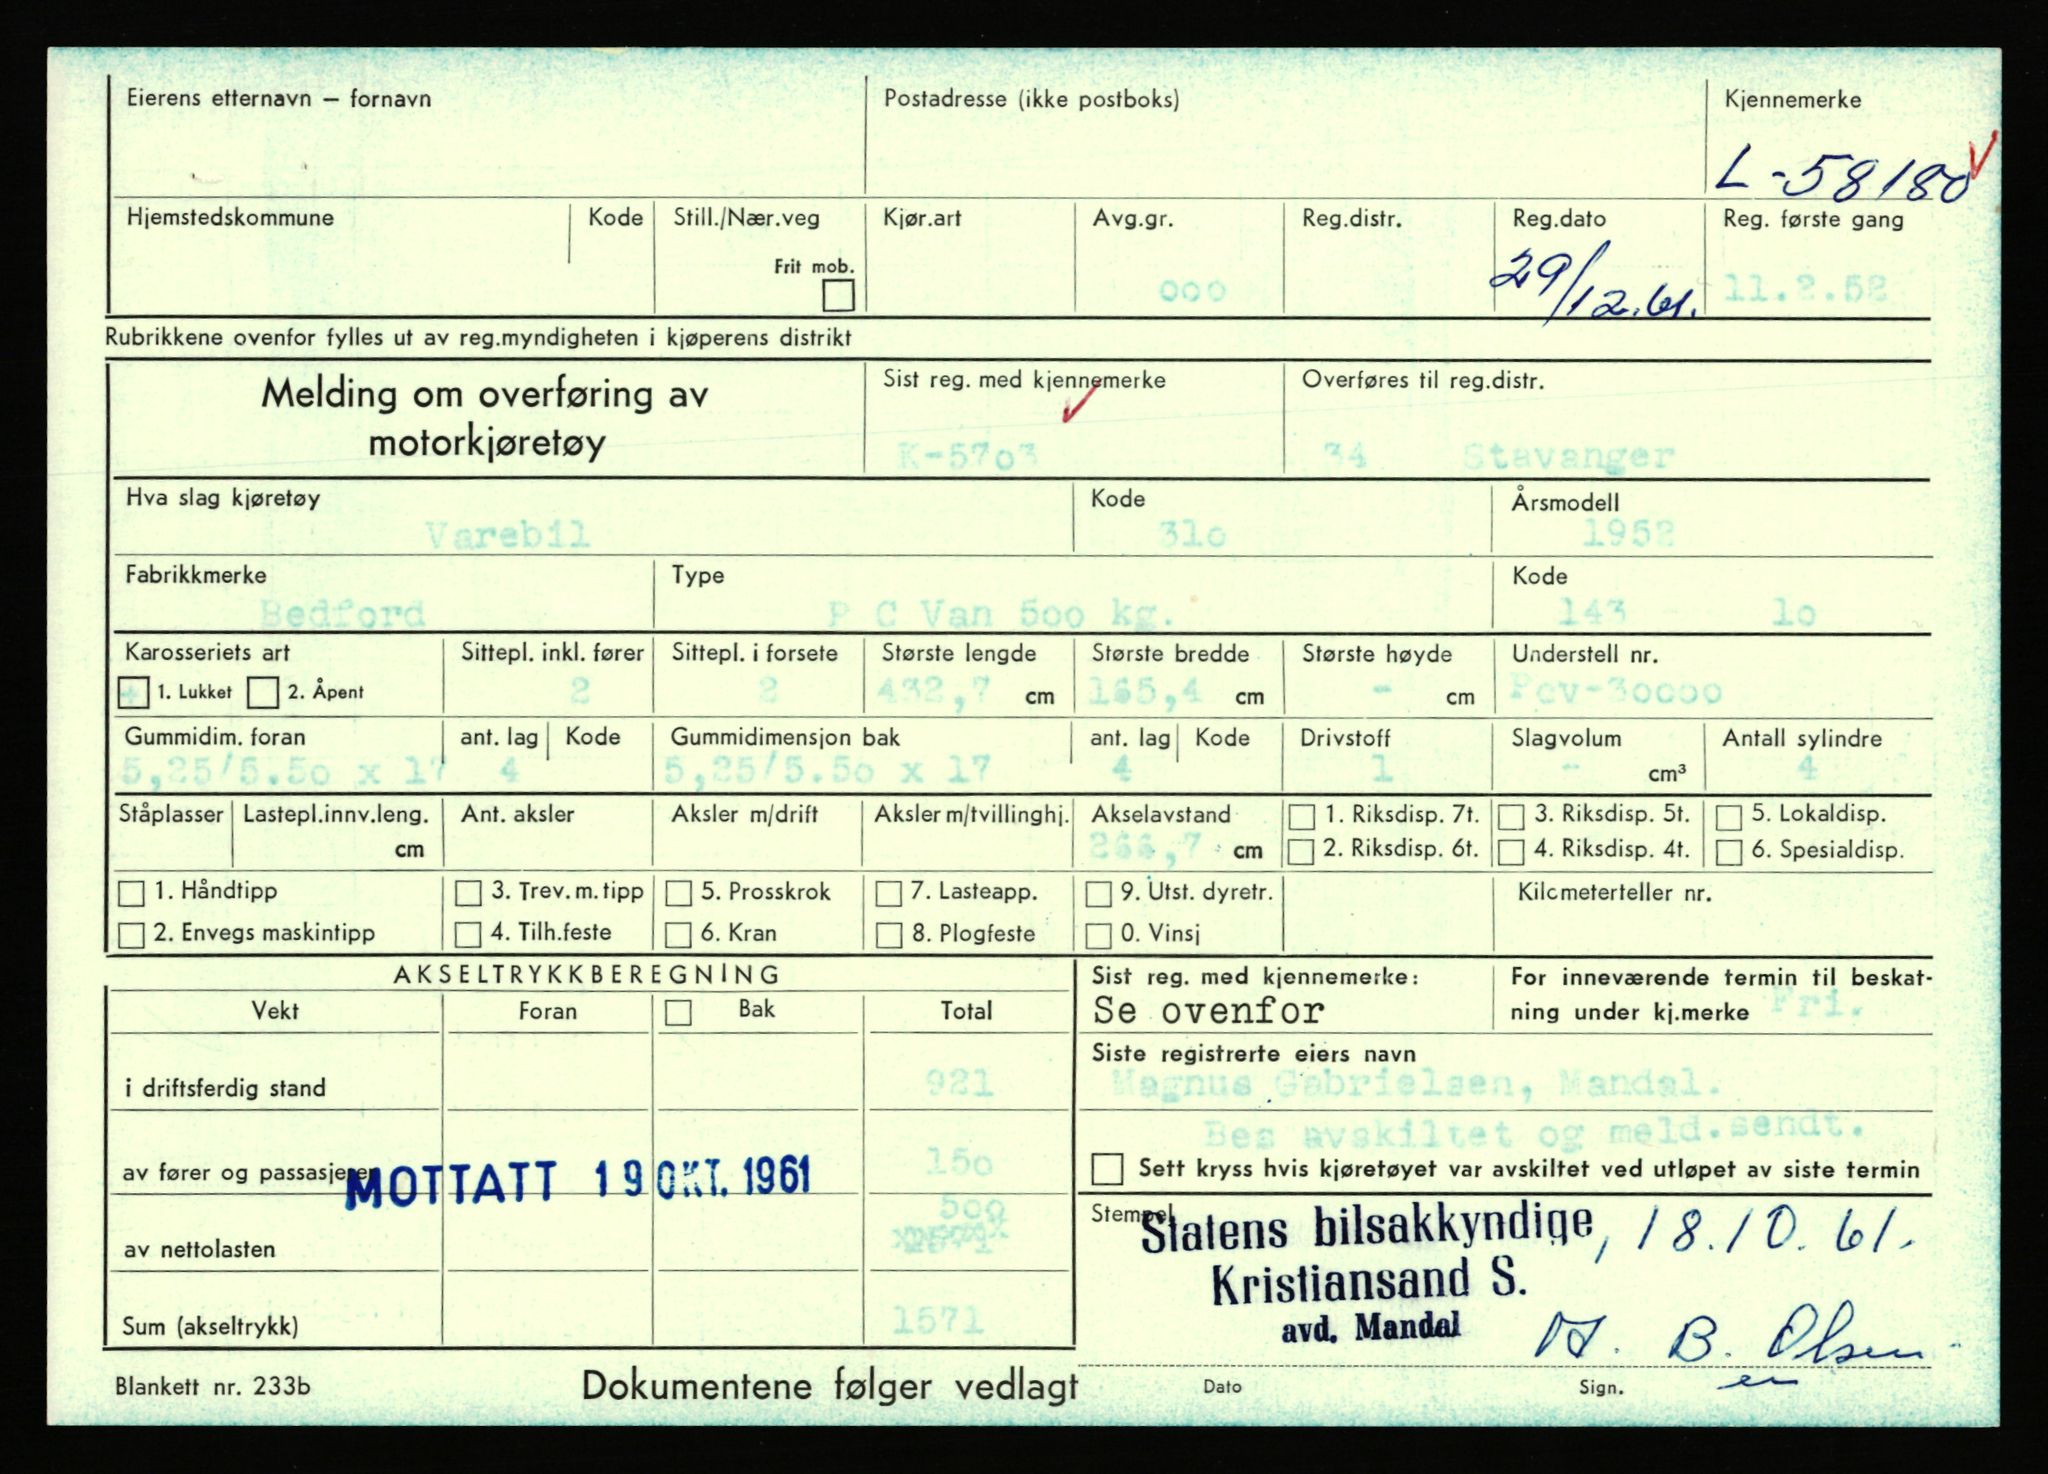 Eierens etternavn – fornavn Postadresse (ikke postboks) Kjennemerke
L-58180
Hjemstedskommune Kode Still./Nær.veg Kjør.art Avg.gr. Reg.distr. Reg.dato Reg. første gang
Frit mob. ooo 29/12.61. 11.2.52
Rubrikkene ovenfor fylles ut av reg.myndigheten i kjøperens distrikt
Melding om overføring av Sist reg. med kjennemerke Overføres til reg.distr.
motorkjøretøy K-57o3 34 Stavanger
Hva slag kjøretøy Kode Årsmodell
Varebil 31o 1952
Fabrikkmerke Type Kode
Bedford P C Van 5oo kg. 143 1o
Karosseriets art Sittepl. inkl. fører Sittepl. i forsete Største lengde Største bredde Største høyde Understell nr.
1. Lukket 2. Åpent 2 2 432,7 cm 165,4 cm - cm Pcv-30000
Gummidim. foran ant. lag Kode Gummidimensjon bak ant. lag Kode Drivstoff Slagvolum Antall sylindre
5,25/5.5o x 17 4 5,25/5.5o x 17 4 1 - cm³ 4
Ståplasser Lastepl.innv.leng. Ant. aksler Aksler m/drift Aksler m/tvillinghj. Akselavstand 1. Riksdisp. 7t. 3. Riksdisp. 5t. 5. Lokaldisp.
cm 266,7 cm 2. Riksdisp. 6t. 4. Riksdisp. 4t. 6. Spesialdisp.
1. Håndtipp 3. Trev. m. tipp 5. Prosskrok 7. Lasteapp. 9. Utst. dyretr. Kilometerteller nr.
2. Envegs maskintipp 4. Tilh.feste 6. Kran 8. Plogfeste 0. Vinsj
AKSELTRYKKBEREGNING Sist reg. med kjennemerke: For inneværende termin til beskat-
Vekt Foran Bak Total Se ovenfor ning under kj.merke Fri.
Siste registrerte eiers navn
i driftsferdig stand 921 Magnus Gabrielsen, Mandal.
Bes avskiltet og meld.sendt.
av fører og passasjerer 15o Sett kryss hvis kjøretøyet var avskiltet ved utløpet av siste termin
MOTTATT 19 OKT. 1961
5oo Stempel
av nettolasten Statens bilsakkyndige, 18.10.61.
Kristiansand S.
Sum (akseltrykk) 1571 avd. Mandal
H. B. Olsen
Blankett nr. 233b Dokumentene følger vedlagt Dato Sign.